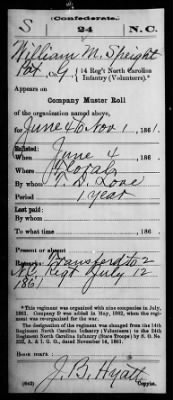 (Confederate.)
S 24 N.C.
William M. Speight
Co. 14 Reg't North Carolina
Infantry (Volunteers).*
Appears on
Company Muster Roll
of the organization named above,
for June 4 to Nov 1, 1861.
Enlisted:
When June 4, 1861.
Where
By whom T. D. Love
Period 1 year
Last paid:
By whom
To what time , 186 .
Present or absent
Remarks: Transferred to 2
N.C. Regt July 12
1861
*This regiment was organized with nine companies in July,
1861. Company D was added in May, 1862, when the regi-
ment was re-organized for the war.
The designation of this regiment was changed from the 14th
Regiment North Carolina Infantry (Volunteers) to the 24th
Regiment North Carolina Infantry (State Troops) by S. O. No.
222, A. & I. G. O., dated November 14, 1861.
Book mark:
J. B. Hyatt
(642) Copyist.